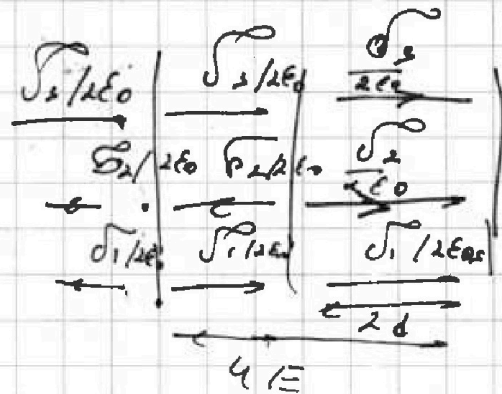 σ₃/2ε₀ σ₃/2ε₀ σ₃/2ε₀
σ₂/2ε₀ σ₂/2ε₀ σ₂/2ε₀
σ₁/2ε₀ σ₁/2ε₀ σ₁/2ε₀
2d